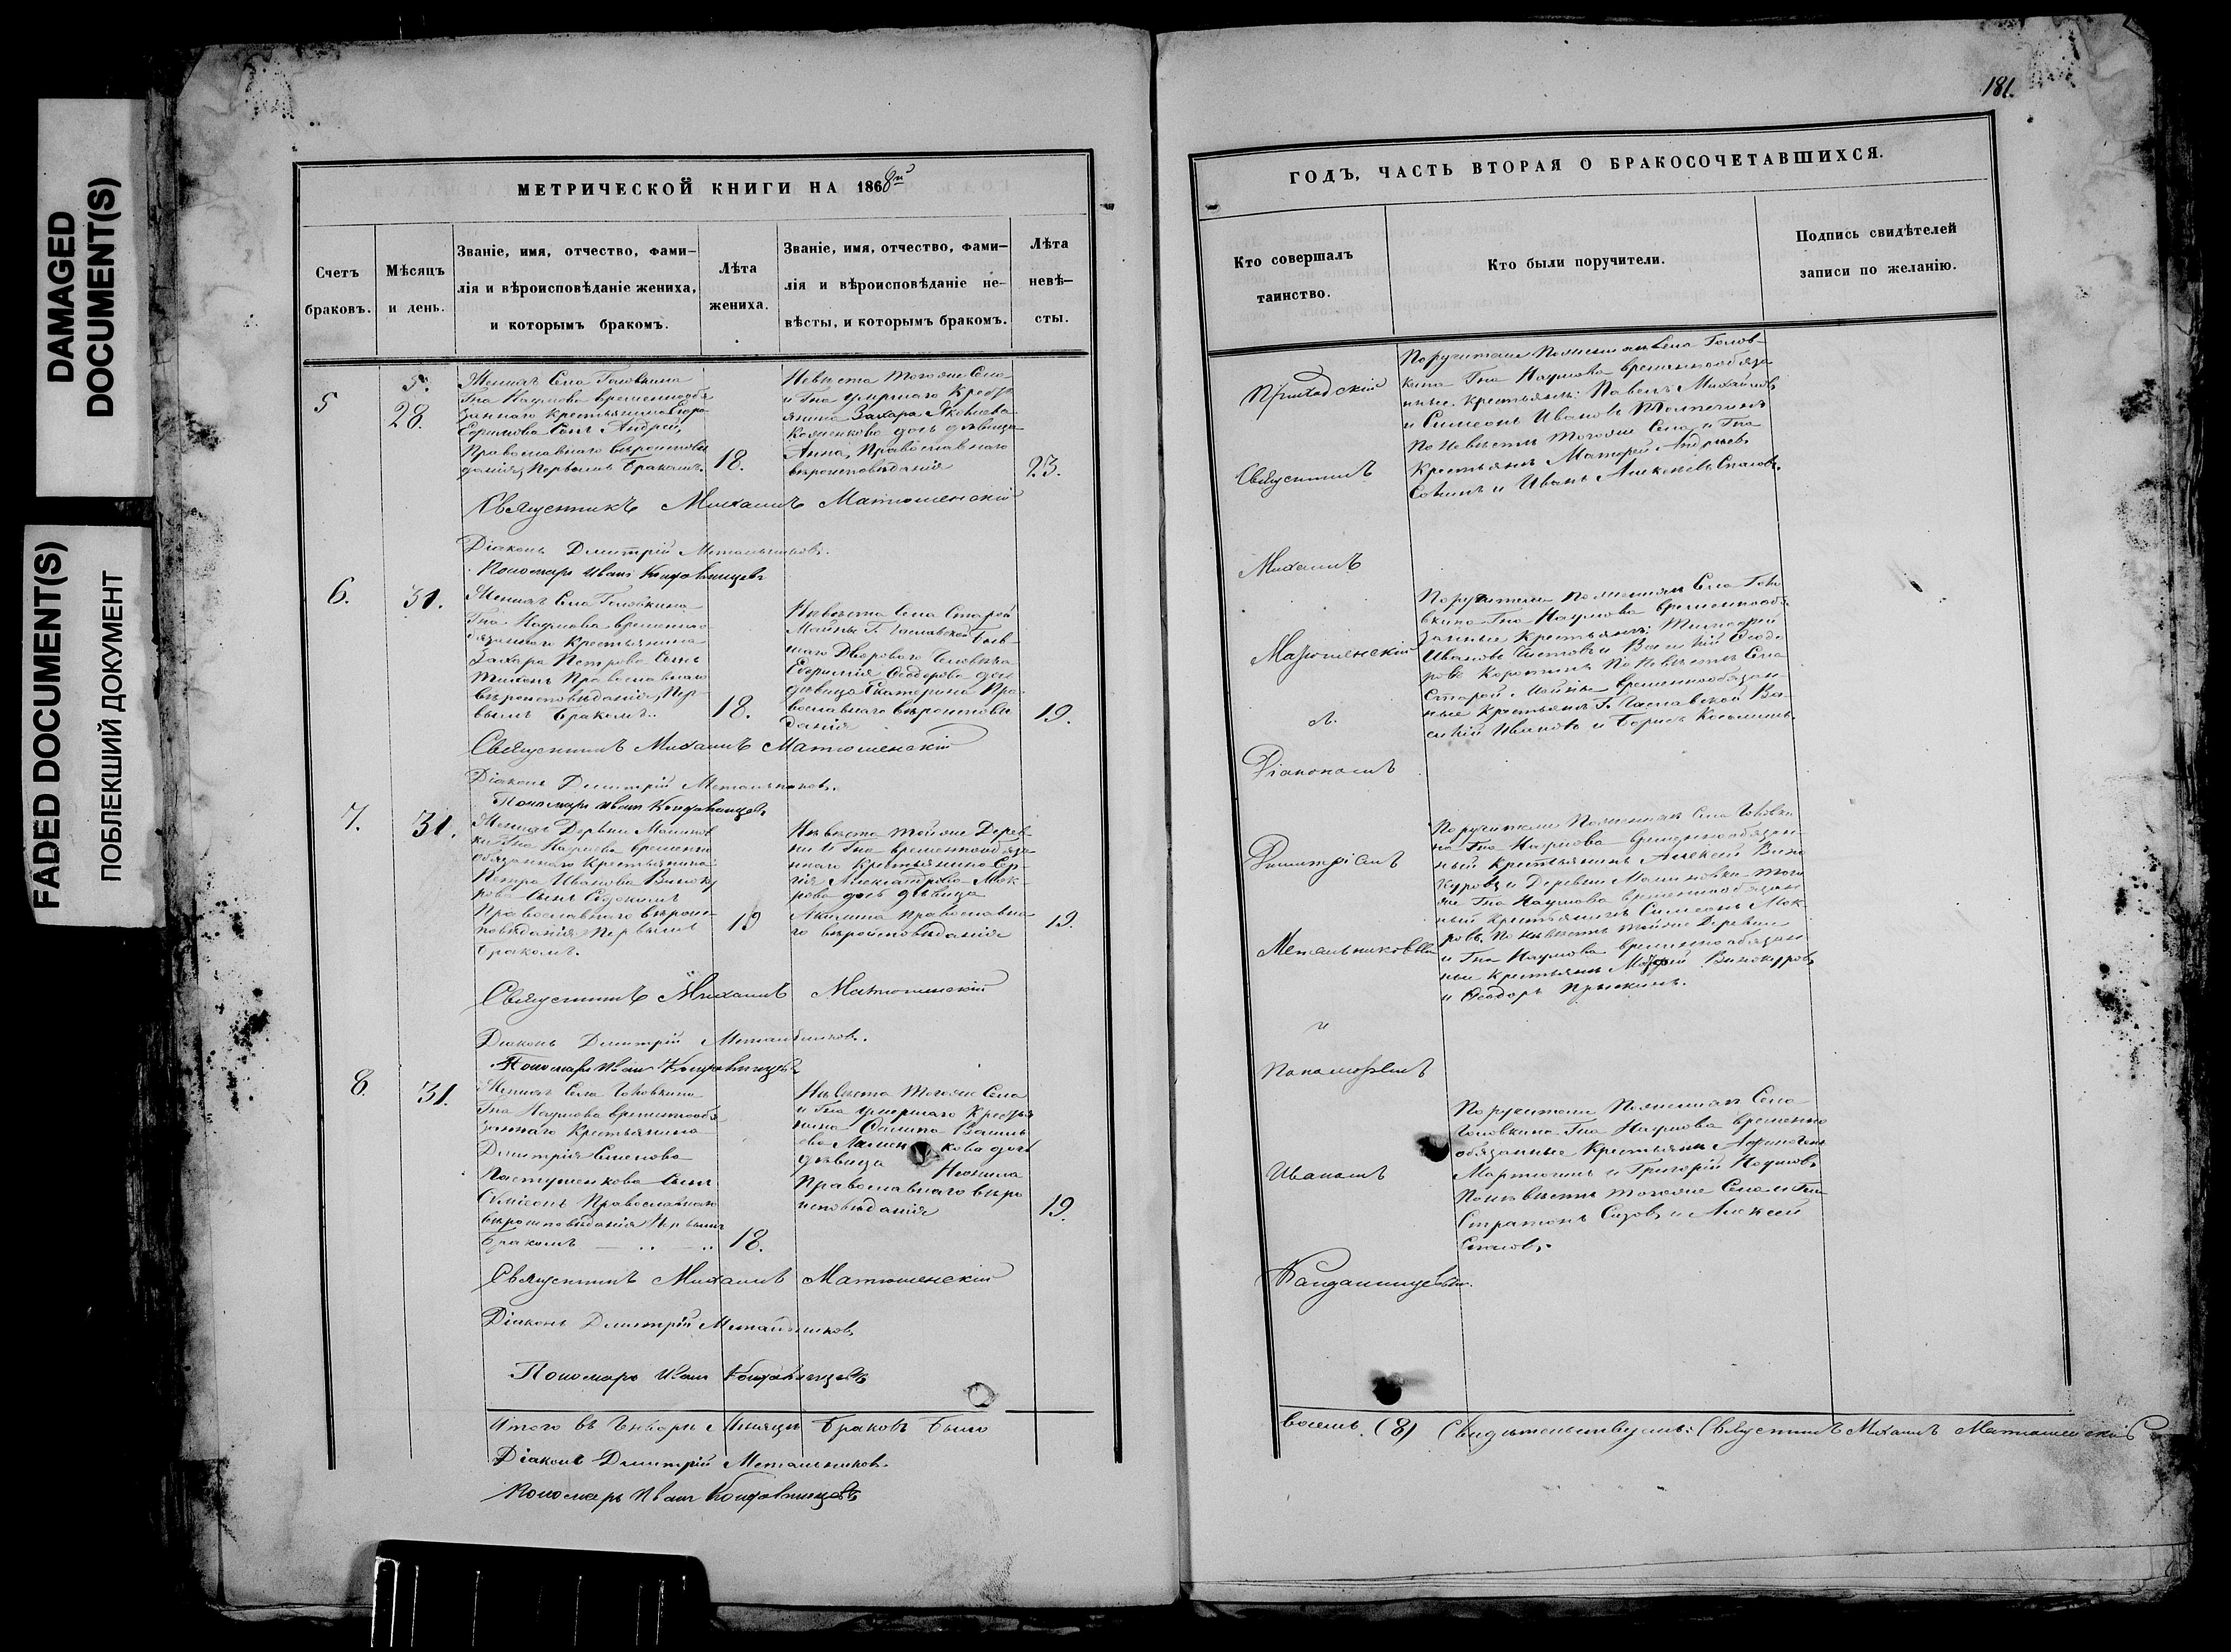 DAMAGED
DOCUMENT(S)
FADED DOCUMENT(S)
ПОБЛЕКШИЙ ДОКУМЕНТ
МЕТРИЧЕСКОЙ КНИГИ НА 1868й
Счетъ
браковъ.
Мѣсяцъ
и день.
Званіе, имя, отчество, фами-
лія и вѣроисповѣданіе жениха,
и которымъ бракомъ.
Лѣта
жениха.
Званіе, имя, отчество, фами-
лія и вѣроисповѣданіе не-
вѣсты, и которымъ бракомъ.
Лѣта
невѣ-
сты.
5
28.
Женихъ Села Головкина
Гна Наумова временнообя
заннаго Крестьянина
Сынъ Андрей,
Православнаго вѣроисповѣ
данія, Первымъ бракомъ.
18.
Невѣста тогоже Села
и Гна умершаго Кресть
янина Захара Яковлева
дочь дѣвица
Анна, Православнаго
вѣроисповѣданія
23.
Священникъ Михаилъ Матюшенскій
Діаконъ Димитрій Метальниковъ.
Пономарь Иванъ
6.
31.
Женихъ Села Головкина
Гна Наумова временно
обязаннаго Крестьянина
Захара Петрова Сынъ
Тихонъ Православнаго
вѣроисповѣданія, Пер-
вымъ бракомъ.
18.
Невѣста Села Старой
Майны Г.
Дворового Человѣка
Ѳеодорова дочь
дѣвица Екатерина Пра
вославнаго вѣроисповѣ
данія
19.
Священникъ Михаилъ Матюшенскій
Діаконъ Димитрій Метальниковъ.
Пономарь Иванъ
7.
31.
Женихъ Деревни Малинов
ки Гна Наумова временно
обязаннаго Крестьянина
Петра Иванова Виноку
рова Сынъ
Православнаго вѣроис-
повѣданія Первымъ
бракомъ.
19
Невѣста тойже Дерев-
ни и Гна временнообяза
ннаго Крестьянина Сер-
гія Александрова Мок-
рова дочь дѣвица
Акилина Православна-
го вѣроисповѣданія
19.
Священникъ Михаилъ Матюшенскій
Діаконъ Димитрій Метальниковъ.
Пономарь Иванъ
8.
31.
Женихъ Села Головкина
Гна Наумова временнообя
заннаго Крестьянина
Димитрія Семенова
Пастушенкова Сынъ
Симеонъ Православнаго
вѣроисповѣданія Первымъ
бракомъ
18.
Невѣста тогоже Села
и Гна умершаго Кресть
янина Филипа Василь
ева дочь
дѣвица Неонила
Православнаго вѣро
исповѣданія
19.
Священникъ Михаилъ Матюшенскій
Діаконъ Димитрій Метальниковъ
Пономарь Иванъ
Итого въ Генварѣ Мѣсяцѣ браковъ было
Діаконъ Димитрій Метальниковъ.
Пономарь Иванъ
181.
ГОДЪ, ЧАСТЬ ВТОРАЯ О БРАКОСОЧЕТАВШИХСЯ.
Кто совершалъ
таинство.
Кто были поручители.
Подпись свидѣтелей
записи по желанію.
Приходскій
Священникъ
Михаилъ
Матюшенскій
съ
Діакономъ
Димитріемъ
Метальниковымъ
и
Пономаремъ
Иваномъ
Поручители По женихѣ Села Голов-
кина Гна Наумова временнообяза
нные Крестьяне: Павелъ Михайловъ
и Симеонъ Ивановъ
По Невѣстѣ тогоже Села и Гна
Крестьяне Матфей Андреевъ
и Иванъ Алексѣевъ
Поручители По женихѣ Села Голо
вкина Гна Наумова временнообя
занные Крестьяне: Тимофей
Ивановъ и Василій Ѳеодо
ровъ По Невѣстѣ Села
Старой Майны временнообязан-
ные Крестьяне Г. Ва-
силій Ивановъ и Борисъ
Поручители По женихѣ Села Головки
на Гна Наумова временнообязан-
ный Крестьянинъ Алексѣй Вино
куровъ и Деревни Малиновки того
же Гна Наумова временнообязан
ный Крестьянинъ Симеонъ Мок-
ровъ. По невѣстѣ тойже Деревни
и Гна Наумова временнообязан
ные Крестьяне Матфей Винокуровъ
и Ѳеодоръ
Поручители По женихѣ Села
Головкина Гна Наумова временно
обязанные Крестьяне
и Григорій Наумовъ
По невѣстѣ тогоже Села и Гна
Стратонъ Сизовъ и Алексѣй
восемь. (8) Свидѣтельствуемъ: Священникъ Михаилъ Матюшенскій